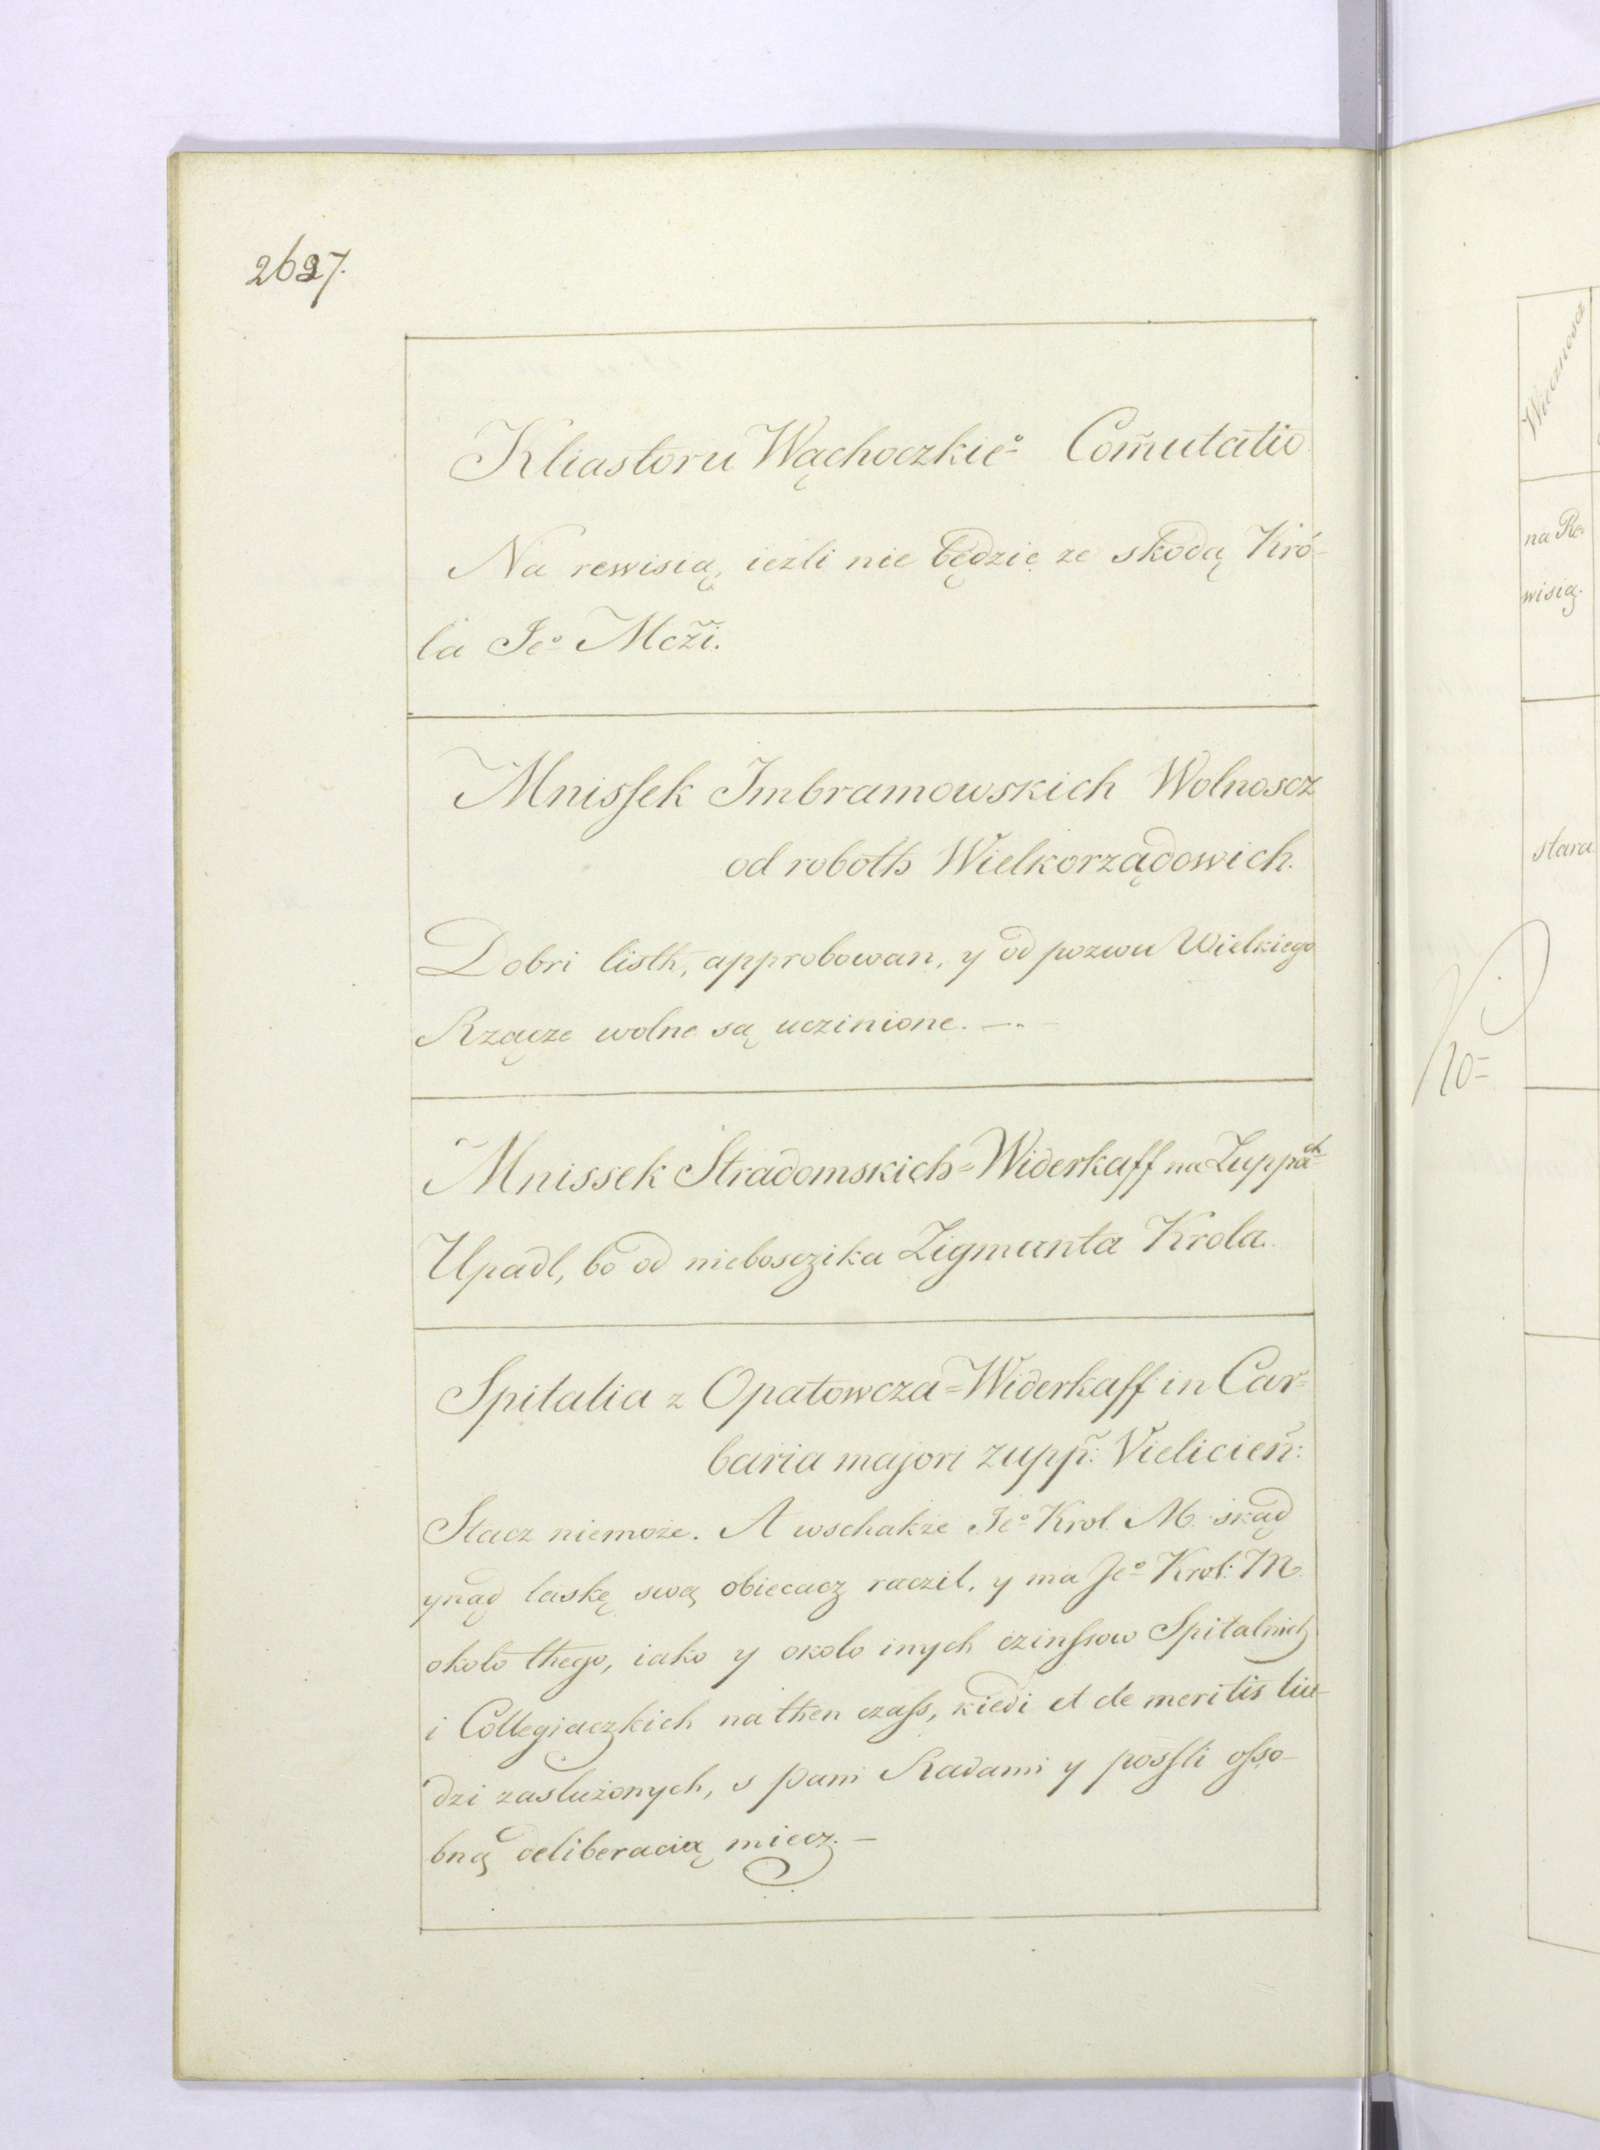 2697.
Kliastoru Wąchoczkieº Com̃utatio
Na rewisią, iezli nie będzie ze skodą Kró-
la Jeº Mczi.
Mnissek Imbramowskich Wolnoscz
od roboth Wielkorządowich.
Dobri listh, approbowan, y od pozwu Wielkiego
Rządze wolne są uczinione. —.—
Mnissek Stradomskich=Widerkaff na Zuppach
Upadl, bo od nieboszika Zigmunta Krola.
Spitalia z Opatowcza=Widerkaff in Car=
baria majori zupp̃: Vielicień:
Stacz niemoże. A wschakże Jeº Krol. M. skąd
ynąd laskę swą obiecacz raczil, y ma Jeº Krol: M.
okolo thego, iako y okolo inych czinssow Spitalnich
i Collegiaczkich na then czass, kiedi et de meritis liu-
dzi zasłużonych, s pani Radami y possli osso-
bną deliberacią miecz. —
Wiecznosc
na Re-
wisią.
stara